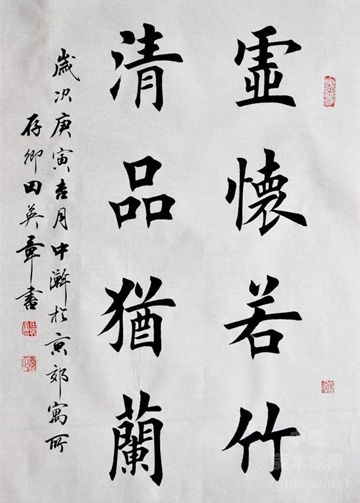 虛懷若竹
清品猶蘭
歲次庚寅吉月中澣於京郊寓所
存卿田英章書